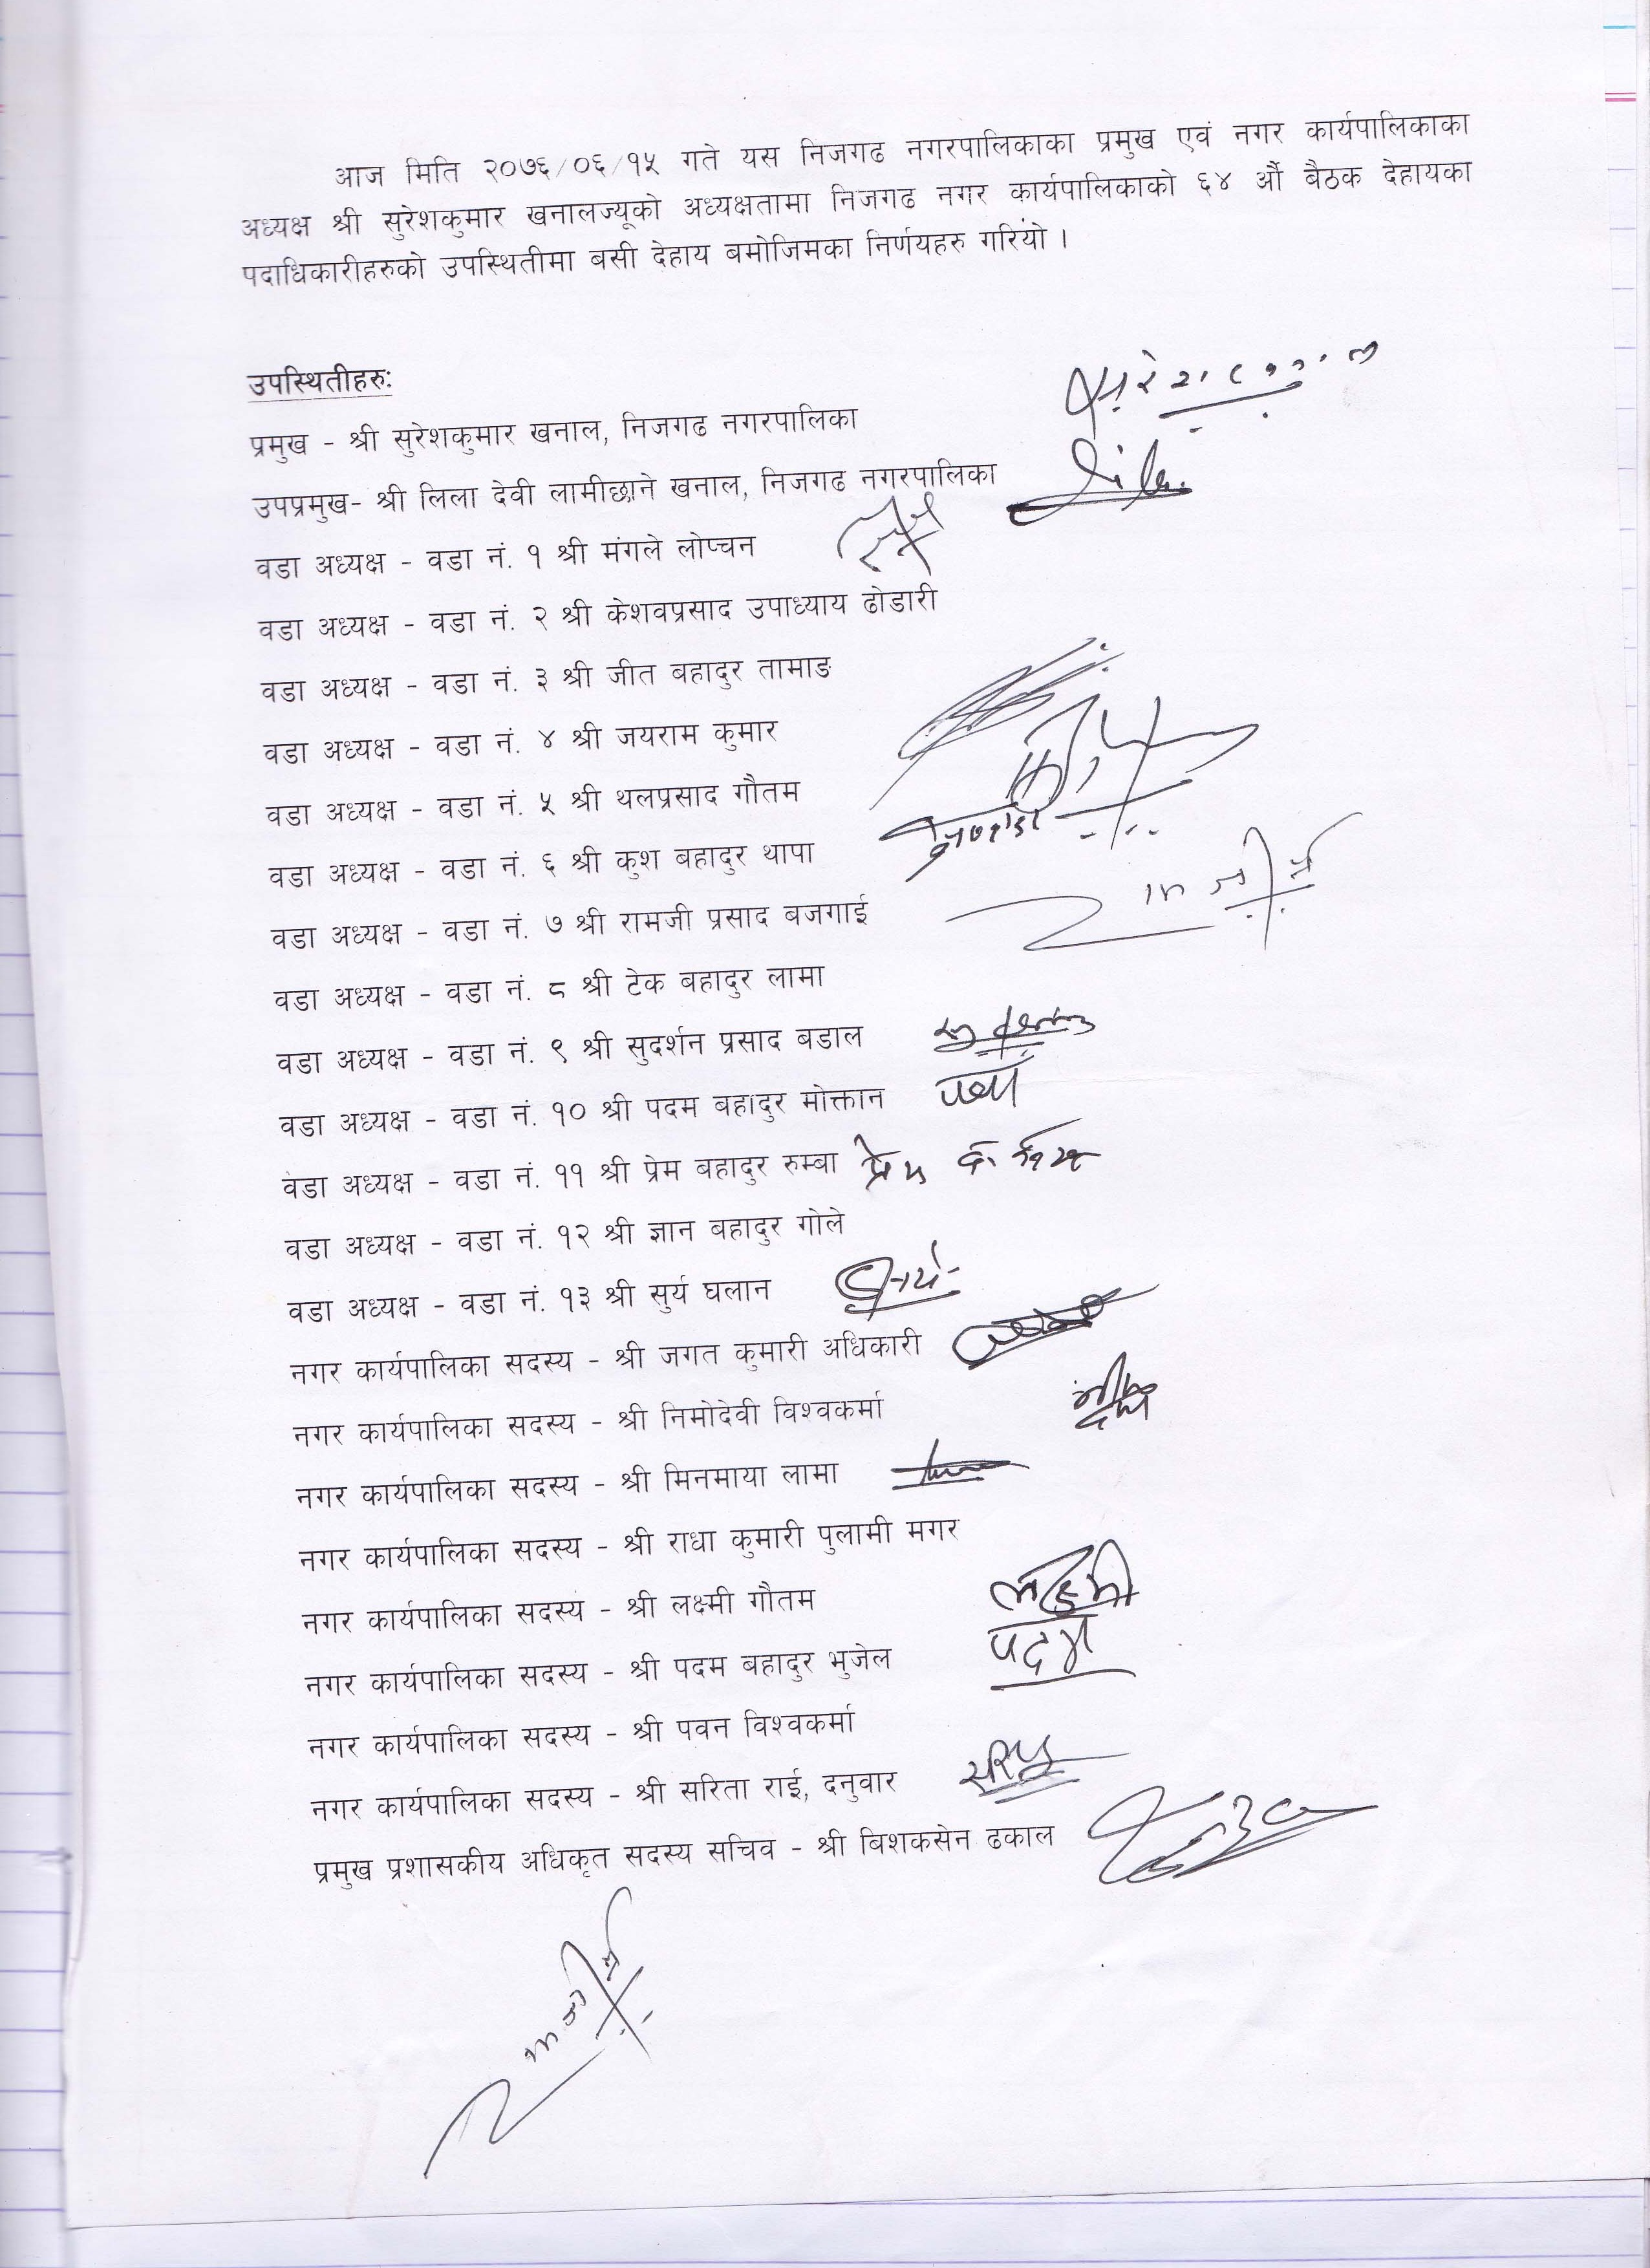 आज मिति २०७६/०६/१५ गते यस निजगढ नगरपालिकाका प्रमुख एवं नगर कार्यपालिकाका
अध्यक्ष श्री सुरेशकुमार खनालज्यूको अध्यक्षतामा निजगढ नगर कार्यपालिकाको ६४ औं बैठक देहायका
पदाधिकारीहरुको उपस्थितीमा बसी देहाय बमोजिमका निर्णयहरु गरियो ।
उपस्थितीहरु:
प्रमुख - श्री सुरेशकुमार खनाल, निजगढ नगरपालिका
उपप्रमुख- श्री लिला देवी लामीछाने खनाल, निजगढ नगरपालिका
वडा अध्यक्ष - वडा नं. १ श्री मंगले लोप्चन
वडा अध्यक्ष - वडा नं. २ श्री केशवप्रसाद उपाध्याय ढोडारी
वडा अध्यक्ष - वडा नं. ३ श्री जीत बहादुर तामाङ
वडा अध्यक्ष - वडा नं. ४ श्री जयराम कुमार
वडा अध्यक्ष - वडा नं. ५ श्री थलप्रसाद गौतम
वडा अध्यक्ष - वडा नं. ६ श्री कुश बहादुर थापा
वडा अध्यक्ष - वडा नं. ७ श्री रामजी प्रसाद बजगाई
वडा अध्यक्ष - वडा नं. ८ श्री टेक बहादुर लामा
वडा अध्यक्ष - वडा नं. ९ श्री सुदर्शन प्रसाद बडाल
वडा अध्यक्ष - वडा नं. १० श्री पदम बहादुर मोक्तान
वडा अध्यक्ष - वडा नं. ११ श्री प्रेम बहादुर रुम्बा
वडा अध्यक्ष - वडा नं. १२ श्री ज्ञान बहादुर गोले
वडा अध्यक्ष - वडा नं. १३ श्री सुर्य घलान
नगर कार्यपालिका सदस्य - श्री जगत कुमारी अधिकारी
नगर कार्यपालिका सदस्य - श्री निमोदेवी विश्वकर्मा
नगर कार्यपालिका सदस्य - श्री मिनमाया लामा
नगर कार्यपालिका सदस्य - श्री राधा कुमारी पुलामी मगर
नगर कार्यपालिका सदस्य - श्री लक्ष्मी गौतम लक्ष्मी
नगर कार्यपालिका सदस्य - श्री पदम बहादुर भुजेल पदम
नगर कार्यपालिका सदस्य - श्री पवन विश्वकर्मा
नगर कार्यपालिका सदस्य - श्री सरिता राई, दनुवार
प्रमुख प्रशासकीय अधिकृत सदस्य सचिव - श्री बिशकसेन ढकाल